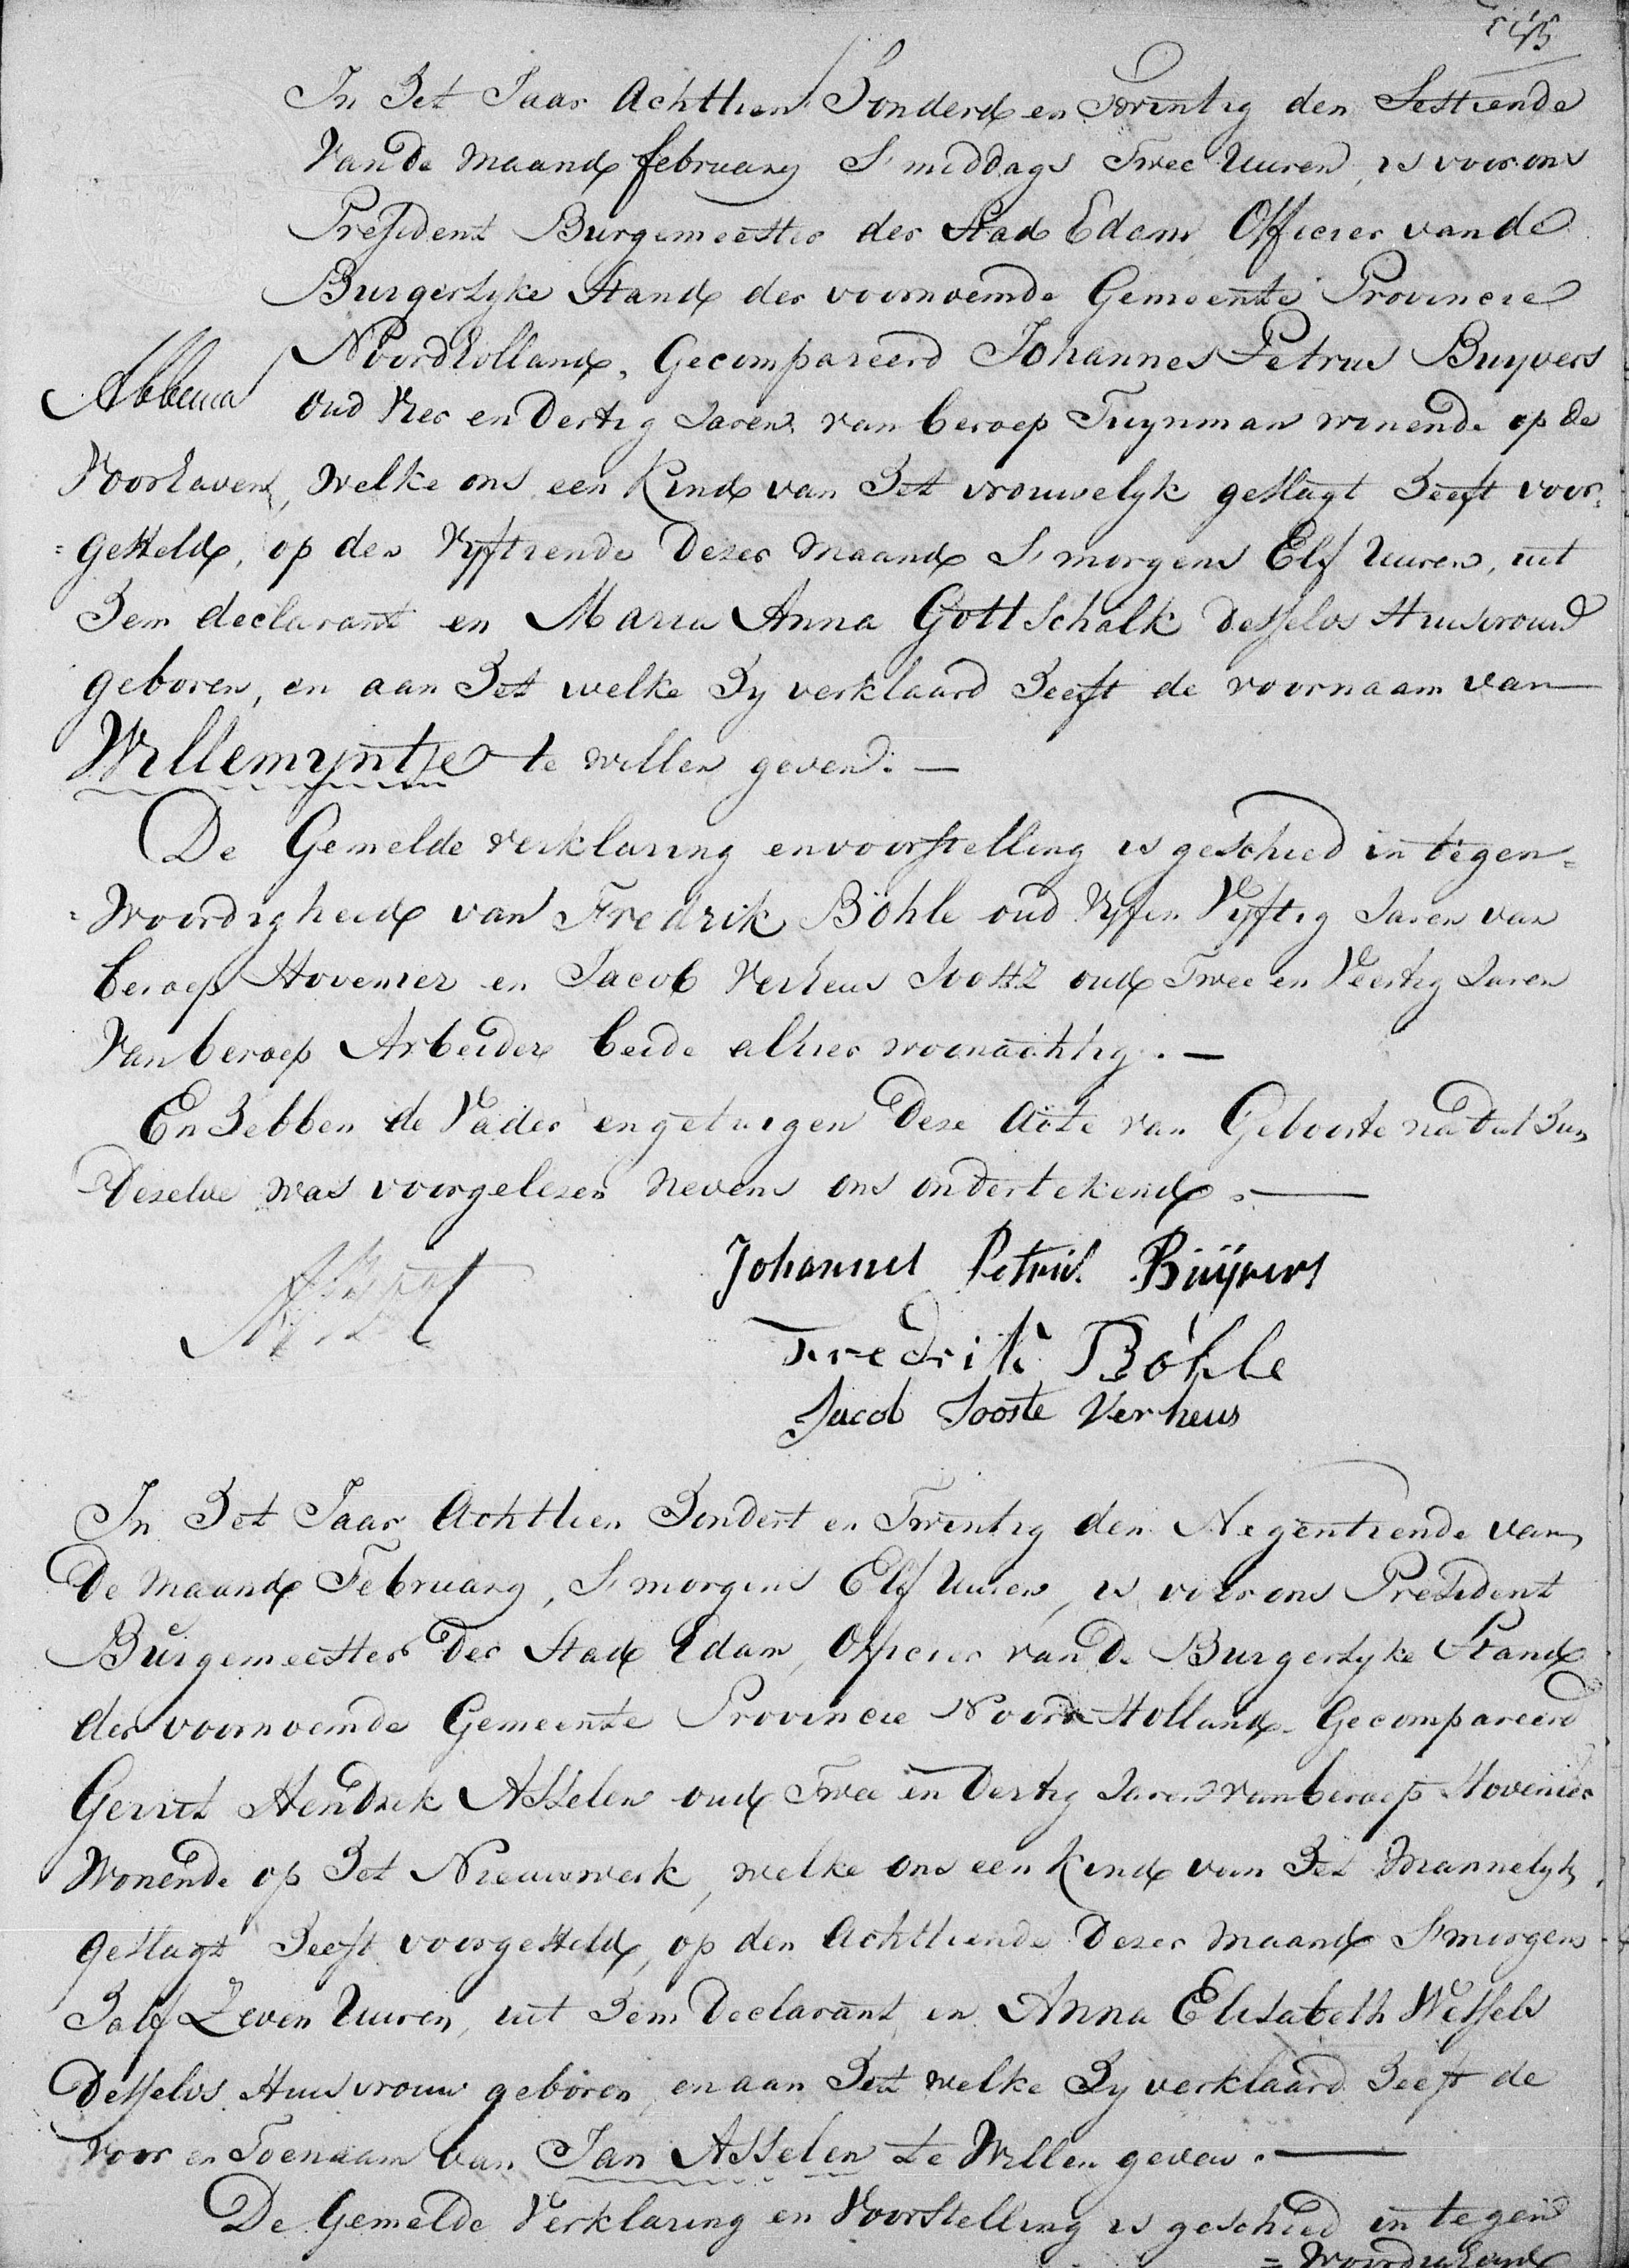 In het Jaar Achttien honderd en Twintig den Sestiende
van de maand february S'middags Twee Uuren, is voor ons
President Burgemeester der Stad Edam, Officier van de
Burgerlyke Stand der voornoemde Gemeente Provincie
Noordholland, Gecompareerd Johannes Petrus Buyvers
oud Vier en Dertig Jaren van beroep Tuynman wonende op de
Voorhaven, welke ons een Kind van het vrouwelyk geslagt heeft voor=
=gesteld, op den Vyftiende dezer maand S'morgens Elf Uuren, uit
hem declarant en Maria Anna Gottschalk desselvs Huisvrouw
geboren, en aan het welke hy verklaard heeft de voornaam van
Willemyntje te willen geven.
De Gemelde verklaring en voorstelling is geschied in tegen=
=woordigheid van Fredrik Böhle oud Vyf en Vyftig Jaren van
beroep Hovenier en Jacob Verheus oud Twee en Veertig Jaren
van beroep Arbeider beide alhier woonachtig.
En hebben de Vader en getuigen deze Acte van Geboorte nadat hun
dezelve was voorgelezen nevens ons ondertekend.
Johannes Petrus Buÿvers
Fredrik Böhle
Jacob Jooste Verheus
In het Jaar Achttien hondert en Twintig den Negentiende van
de maand February, S'morgens Elf Uuren, is voor ons President
Burgemeester der Stad Edam, Officier van de Burgerlyke Stand
der voornoemde Gemeente Provincie Noord Holland, Gecompareerd
Gerrit Hendrik Asselen oud Twee en dertig Jaren van beroep Hovenier
Wonende op het Nieuwwerk, welke ons een Kind van het Mannelyk
geslagt heeft voorgesteld, op den Achttiende dezer maand S'morgens
half Zeven Uuren, uit hem declarant en Anna Elisabeth Wessels
desselvs Huisvrouw geboren, en aan het welke hy verklaard heeft de
voor en Toenaam van Jan Asselen te Willen geven.
De Gemelde Verklaring en Voorstelling is geschied in tegen
=woordigheid